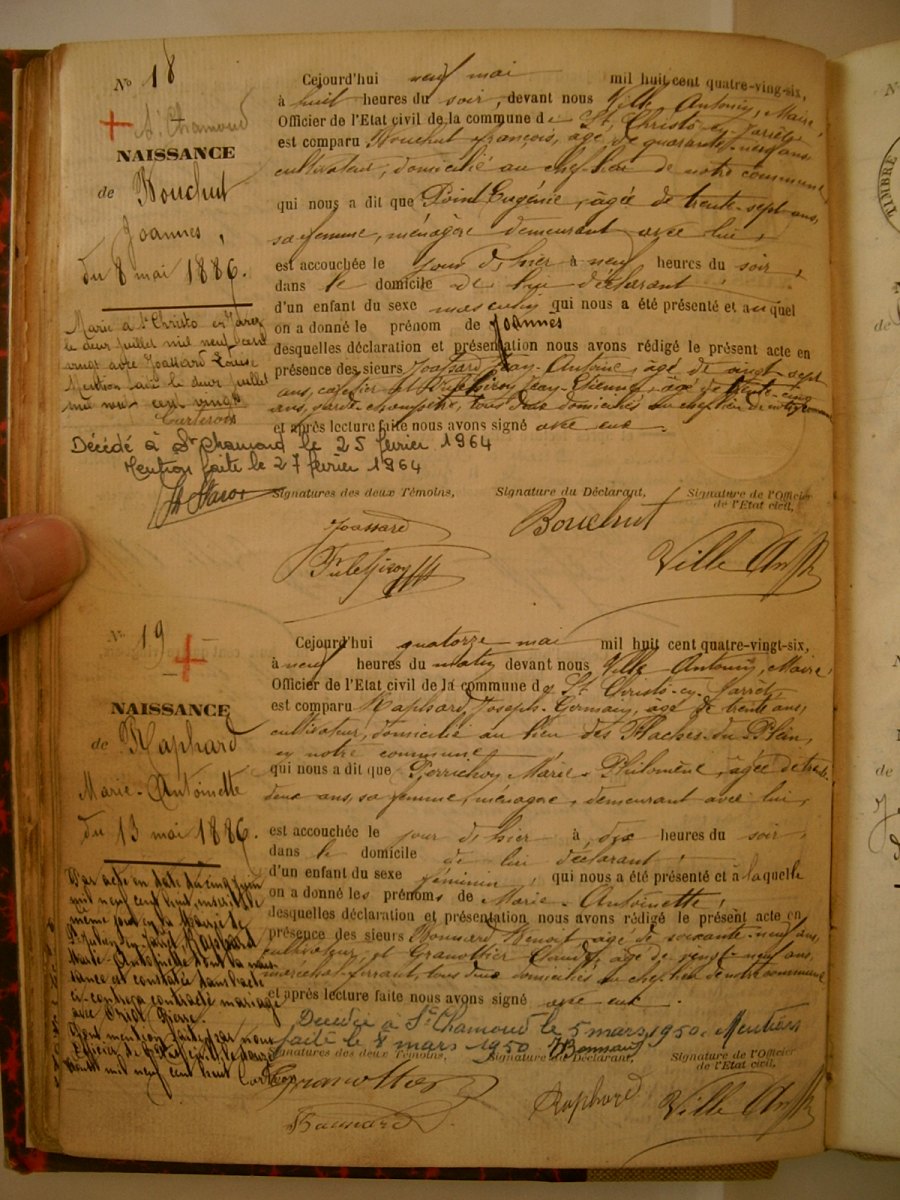 No 18
St Chamond
NAISSANCE
de Bouchut
Joannes,
du 8 mai 1886.
Marié à St Christo en Jarez
le deux juillet mil neuf cent
vingt avec Joassard Louise
Mention faite le deux juillet
mil neuf cent vingt
Cejourd'hui neuf mai mil huit cent quatre-ving-six,
à huit heures du soir, devant nous Ville Antonin, Maire,
Officier de l'Etat civil de la commune de St Christo-en-Jarrêt,
est comparu Bouchut François, âgé de quarante-neuf ans,
cultivateur, domicilié au chef-lieu de notre commune,
qui nous a dit que Point Eugénie, âgée de trente-sept ans,
sa femme, ménagère demeurant avec lui,
est accouchée le jour d'hier à neuf heures du soir,
dans le domicile de lui déclarant,
d'un enfant du sexe masculin qui nous a été présenté et auquel
on a donné le prénom de Joannes
desquelles déclaration et présentation nous avons rédigé le présent acte en
présence des sieurs Joassard Jean-Antoine, âgé de vingt-sept
ans, cafetier et Jean-Etienne, âgé de trente-cinq
ans, garde-champêtre, tous deux domiciliés au chef-lieu de notre commune
et après lecture faite nous avons signé avec eux.
Décédé à St Chamond le 25 février 1964
Mention faite le 27 février 1964
Signatures des deux Témoins, Signature du Déclarant, Signature de l'Officier
de l'Etat civil,
Joassard
Bouchut
Ville Ant
No 19
NAISSANCE
de Raphard
Marie-Antoinette
du 13 mai 1886.
Par acte en date du cinq juin
mil neuf cent huit inscrit le
même jour en la Mairie de
Raphard
Marie-Antoinette dont la nais-
sance est constatée dans l'acte
ci-contre a contracté mariage
avec Pierre.
Dont mention faite par nous
Officier de l'Etat civil le douze
août mil neuf cent huit
Cejourd'hui quatorze mai mil huit cent quatre-vingt-six,
à neuf heures du matin devant nous Ville Antonin, Maire,
Officier de l'Etat civil de la commune de St Christo-en-Jarrêt,
est comparu Raphard Joseph-Germain, âgé de trente ans,
cultivateur, domicilié au lieu des Flaches-du-Plan,
en notre commune
qui nous a dit que Perrichon Marie-Philomène, âgée de trente-
deux ans, sa femme, ménagère, demeurant avec lui,
est accouchée le jour d'hier à dix heures du soir,
dans le domicile de lui déclarant,
d'un enfant du sexe féminin, qui nous a été présenté et à laquelle
on a donné les prénoms de Marie-Antoinette,
desquelles déclaration et présentation nous avons rédigé le présent acte en
présence des sieurs Bonnard Benoît âgé de soixante-neuf ans,
cultivateur, et Granottier Claude, âgé de vingt-neuf ans,
maréchal-ferrant, tous deux domiciliés au chef-lieu de notre commune
et après lecture faite nous avons signé avec eux.
Décédée à St Chamond le 5 mars 1950. Mention
faite le 8 mars 1950
Signatures des deux Témoins, Signature du Déclarant, Signature de l'Officier
de l'Etat civil,
Granottier
Bonnard
Raphard
Ville Ant
TIMBRE
de
de